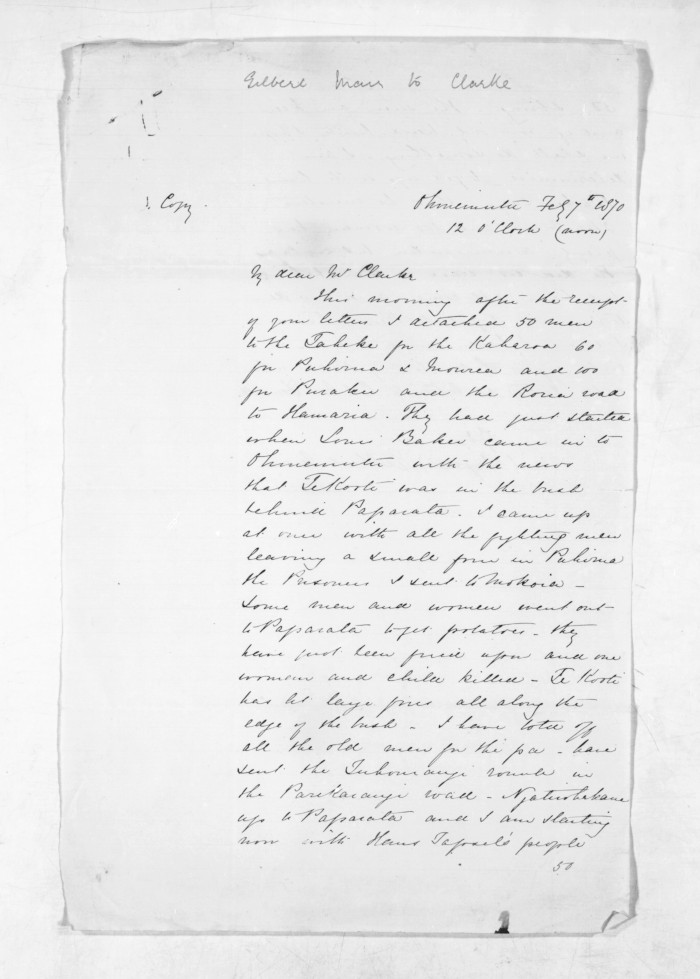 Gilbert Mair to Clarke
Copy.
Ohinemutu Feby 7th 1870
12 O'Clock (noon)
My dear Mr Clarke
This morning after the receipt
of your letters I detached 50 men
to the Taheke for the Kaharoa 60
for Puhirua & Mourea and 100
for Puraku and the Rotua road
to Hamaria. They had just started
when Louis Baker came in to
Ohinemutu with the news
that Te Kooti was in the bush
behind Paparata. I came up
at once with all the fighting men
leaving a small force in Puhirua
the Prisoners I sent to Mokoia -
Some men and women went out
to Paparata to get potatoes - they
have just been fired upon and one
woman and child killed - Te Kooti
has lit large fires all along the
edge of the bush - I have told off
all the old men for the pa - have
sent the Tuhourangi round in
the Parekarangi road - Ngatiwhakaue
up to Paparata and I am starting
now with Hans Tapsel's people
50
1